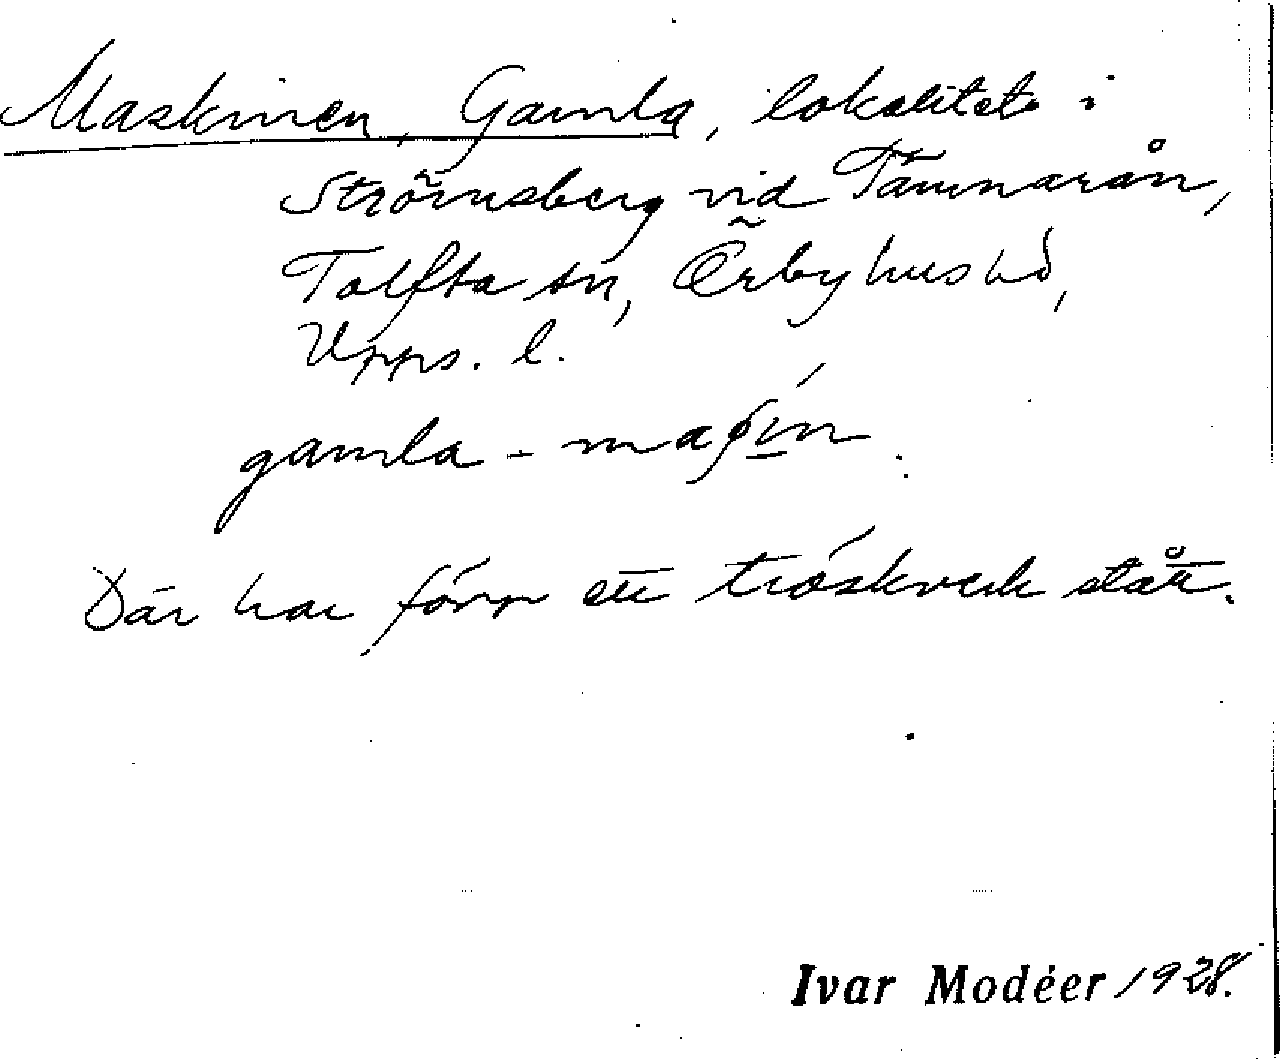 Maskinen, Gamla, lokalitet i
Strömsberg vid Tämnarån,
Tolfta sn, Örbyhus hd,
Upps. l.
gamla - maʃín.
Där har förr ett tröskverk stått.
Ivar Modéer 1928.